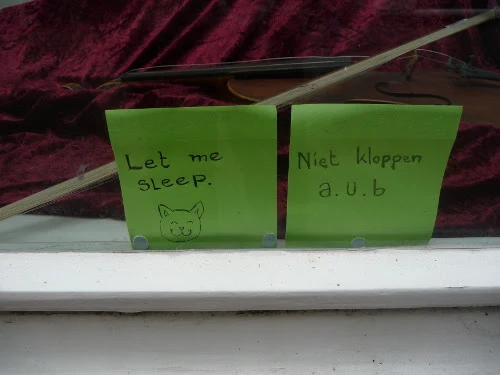 Let me
sleep.
Niet kloppen
a.u.b